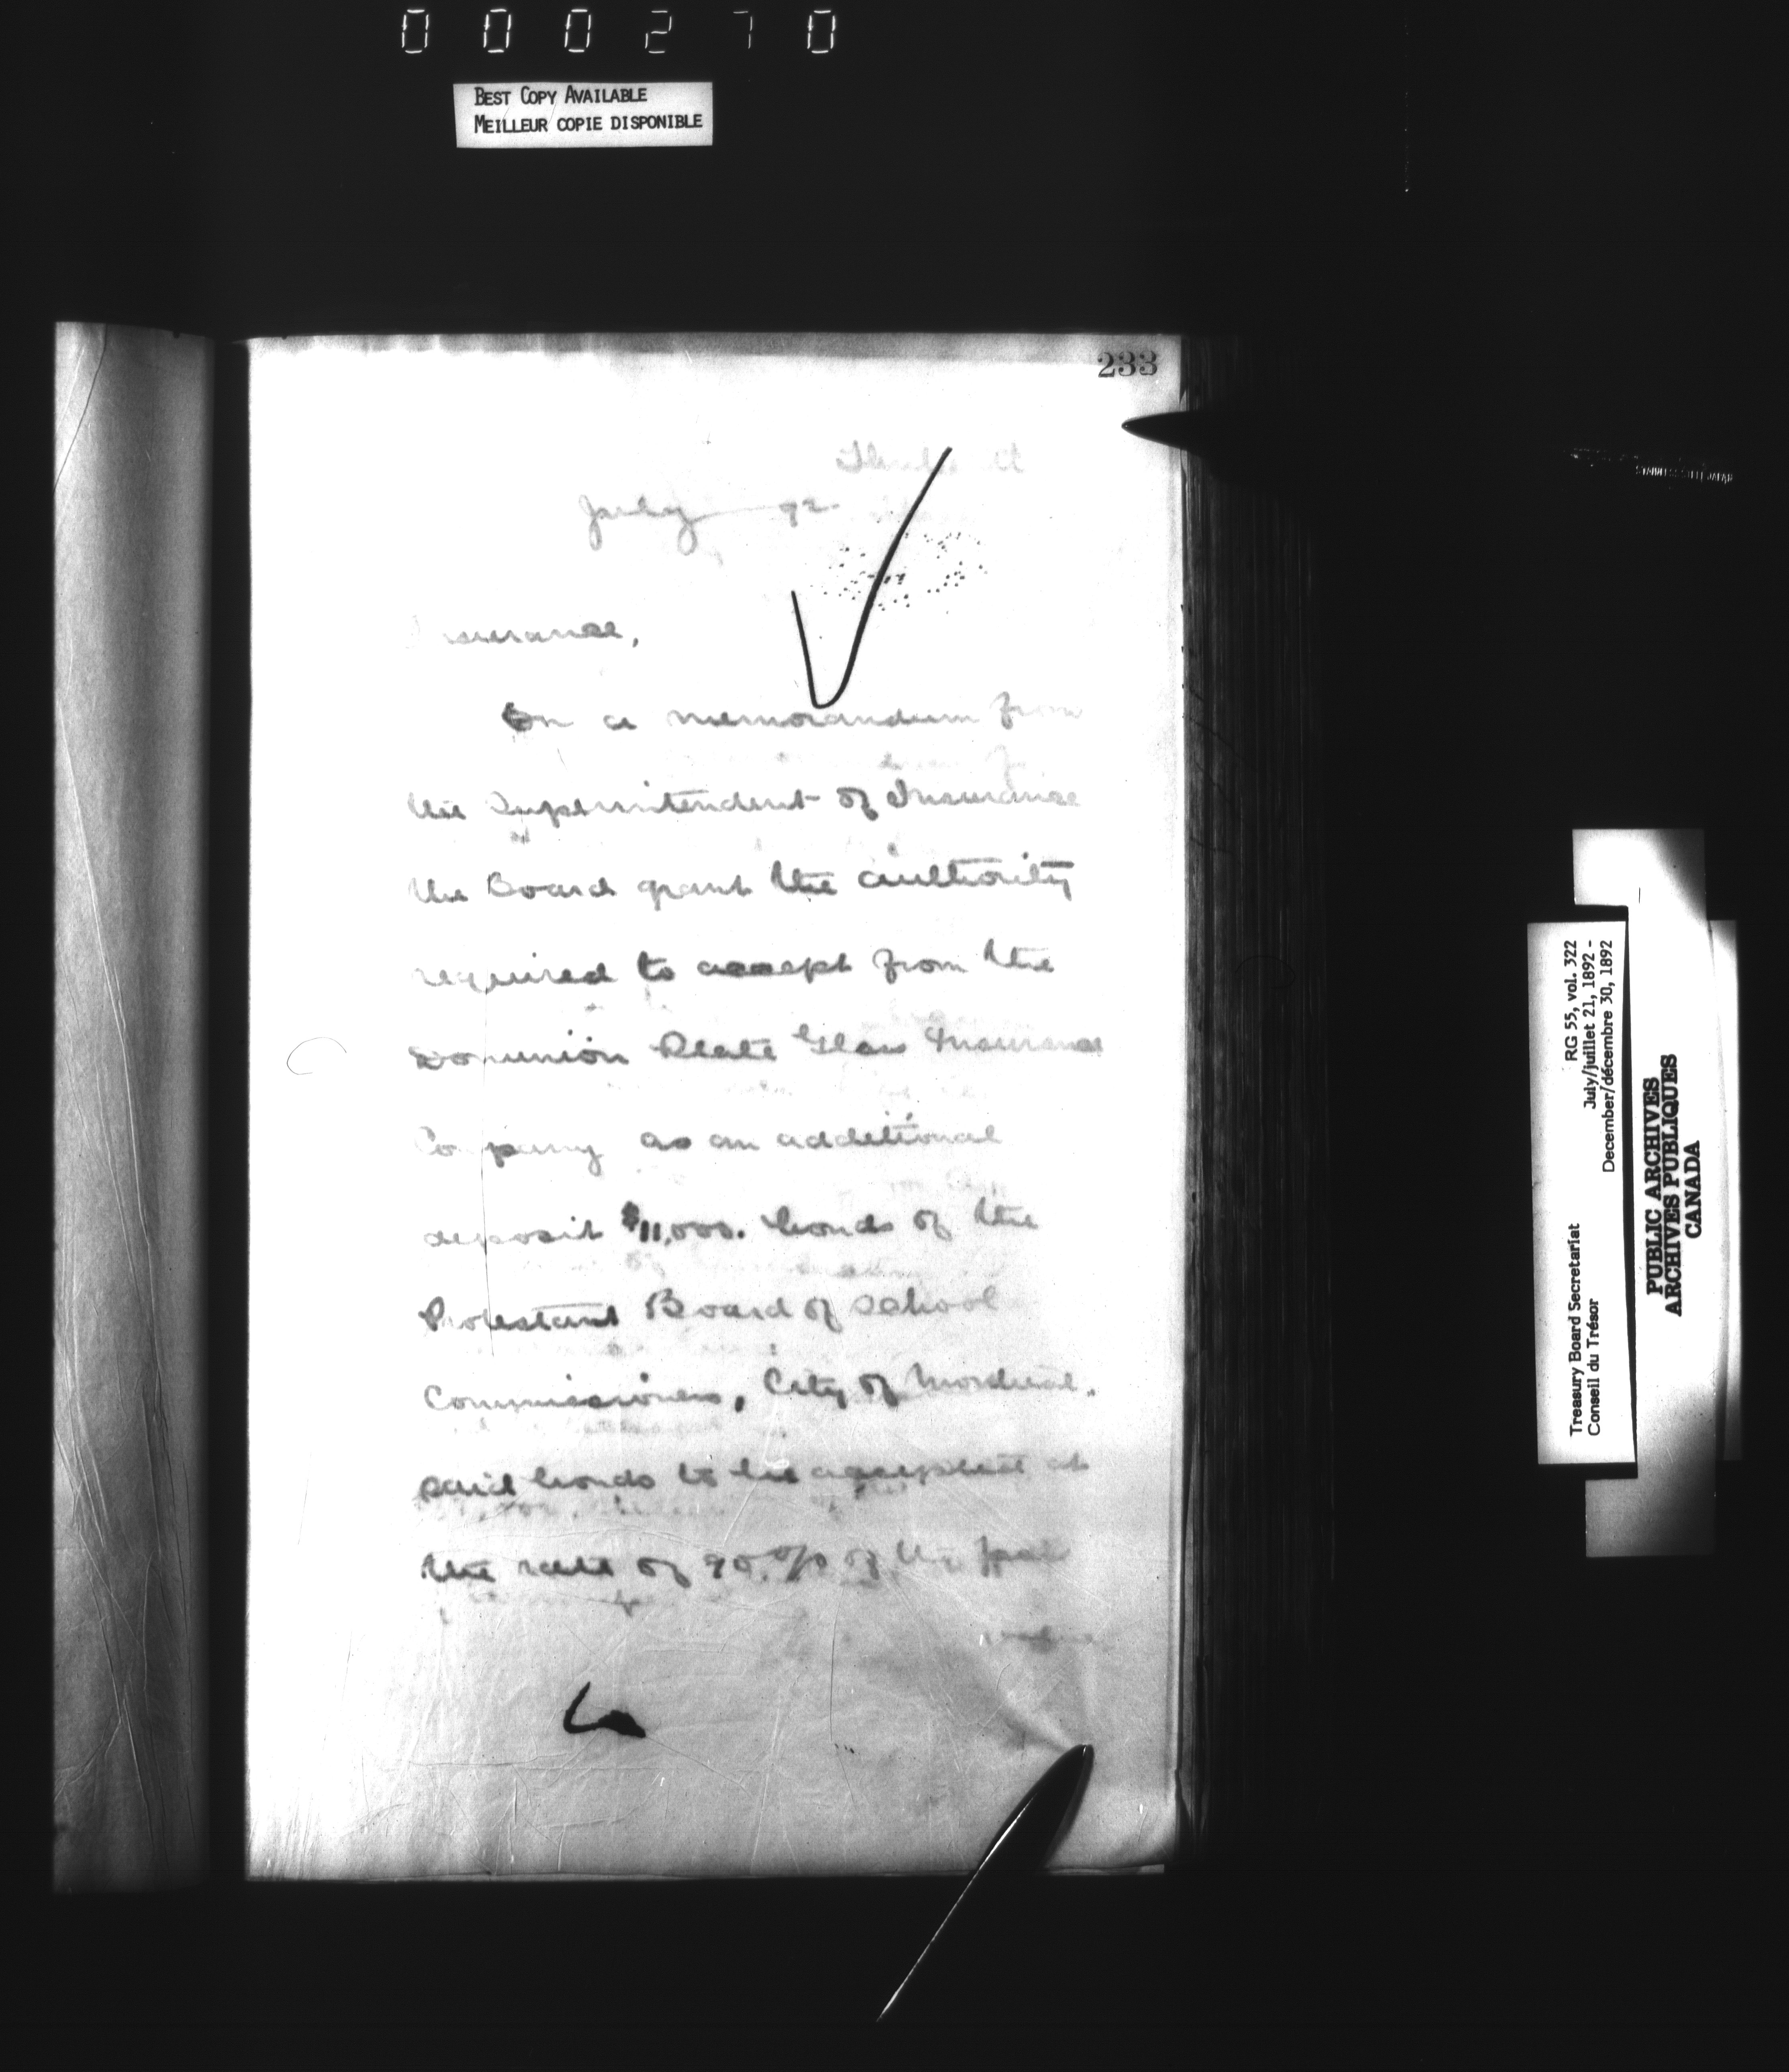 000270
BEST COPY AVAILABLE
MEILLEUR COPIE DISPONIBLE
233
July 92
Insurance,
On a memorandum from
the Superintendent of Insurance
the Board grant the authority
required to accept from the
Dominion Plate Glass Insurance
Company as an additional
deposit $11,000. bonds of the
Protestant Board of School
Commissioners, City of Montreal.
said bonds to be accepted at
the rate of 90. o/o of the par
value
Treasury Board Secretariat RG 55, vol. 322
Conseil du Trésor July/juillet 21, 1892 -
December/décembre 30, 1892
PUBLIC ARCHIVES
ARCHIVES PUBLIQUES
CANADA